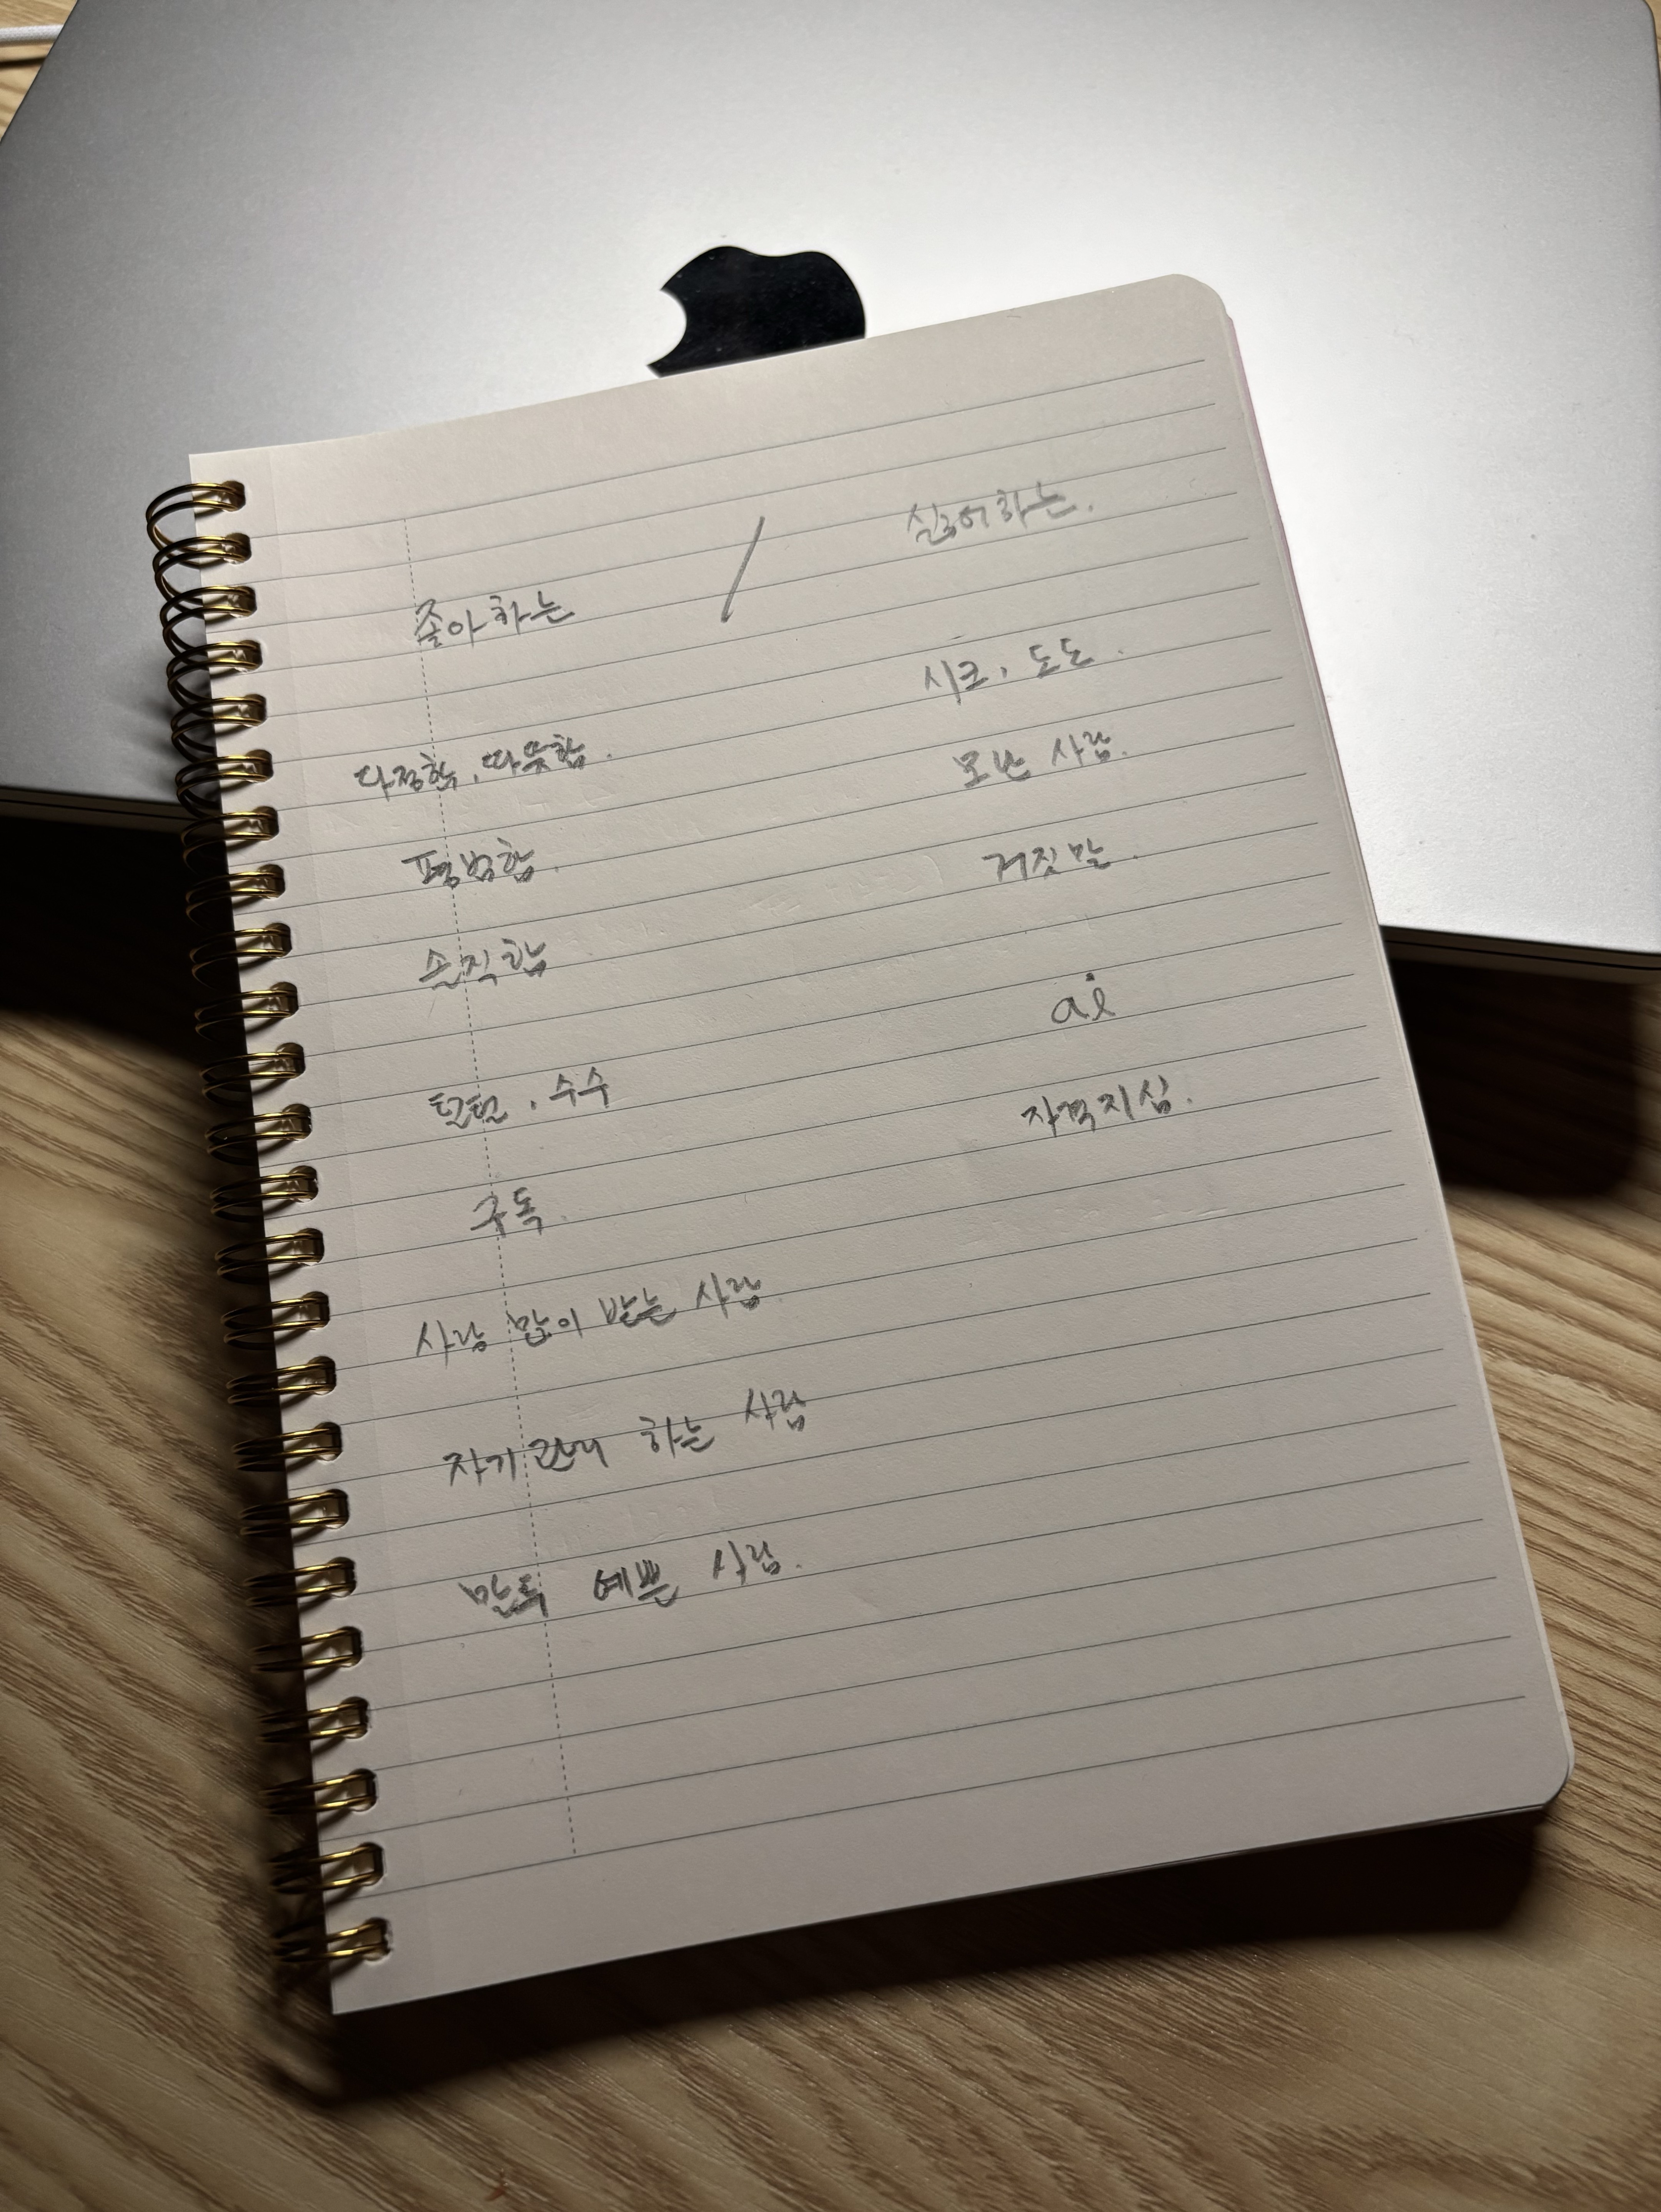 좋아하는 / 싫어하는.
다정함, 따뜻함.
시크, 도도.
평범함.
모난 사람.
솔직함
거짓말.
털털, 수수
ai
구독.
자격지심.
사랑 많이 받는 사람.
자기관리 하는 사람
말투 예쁜 사람.